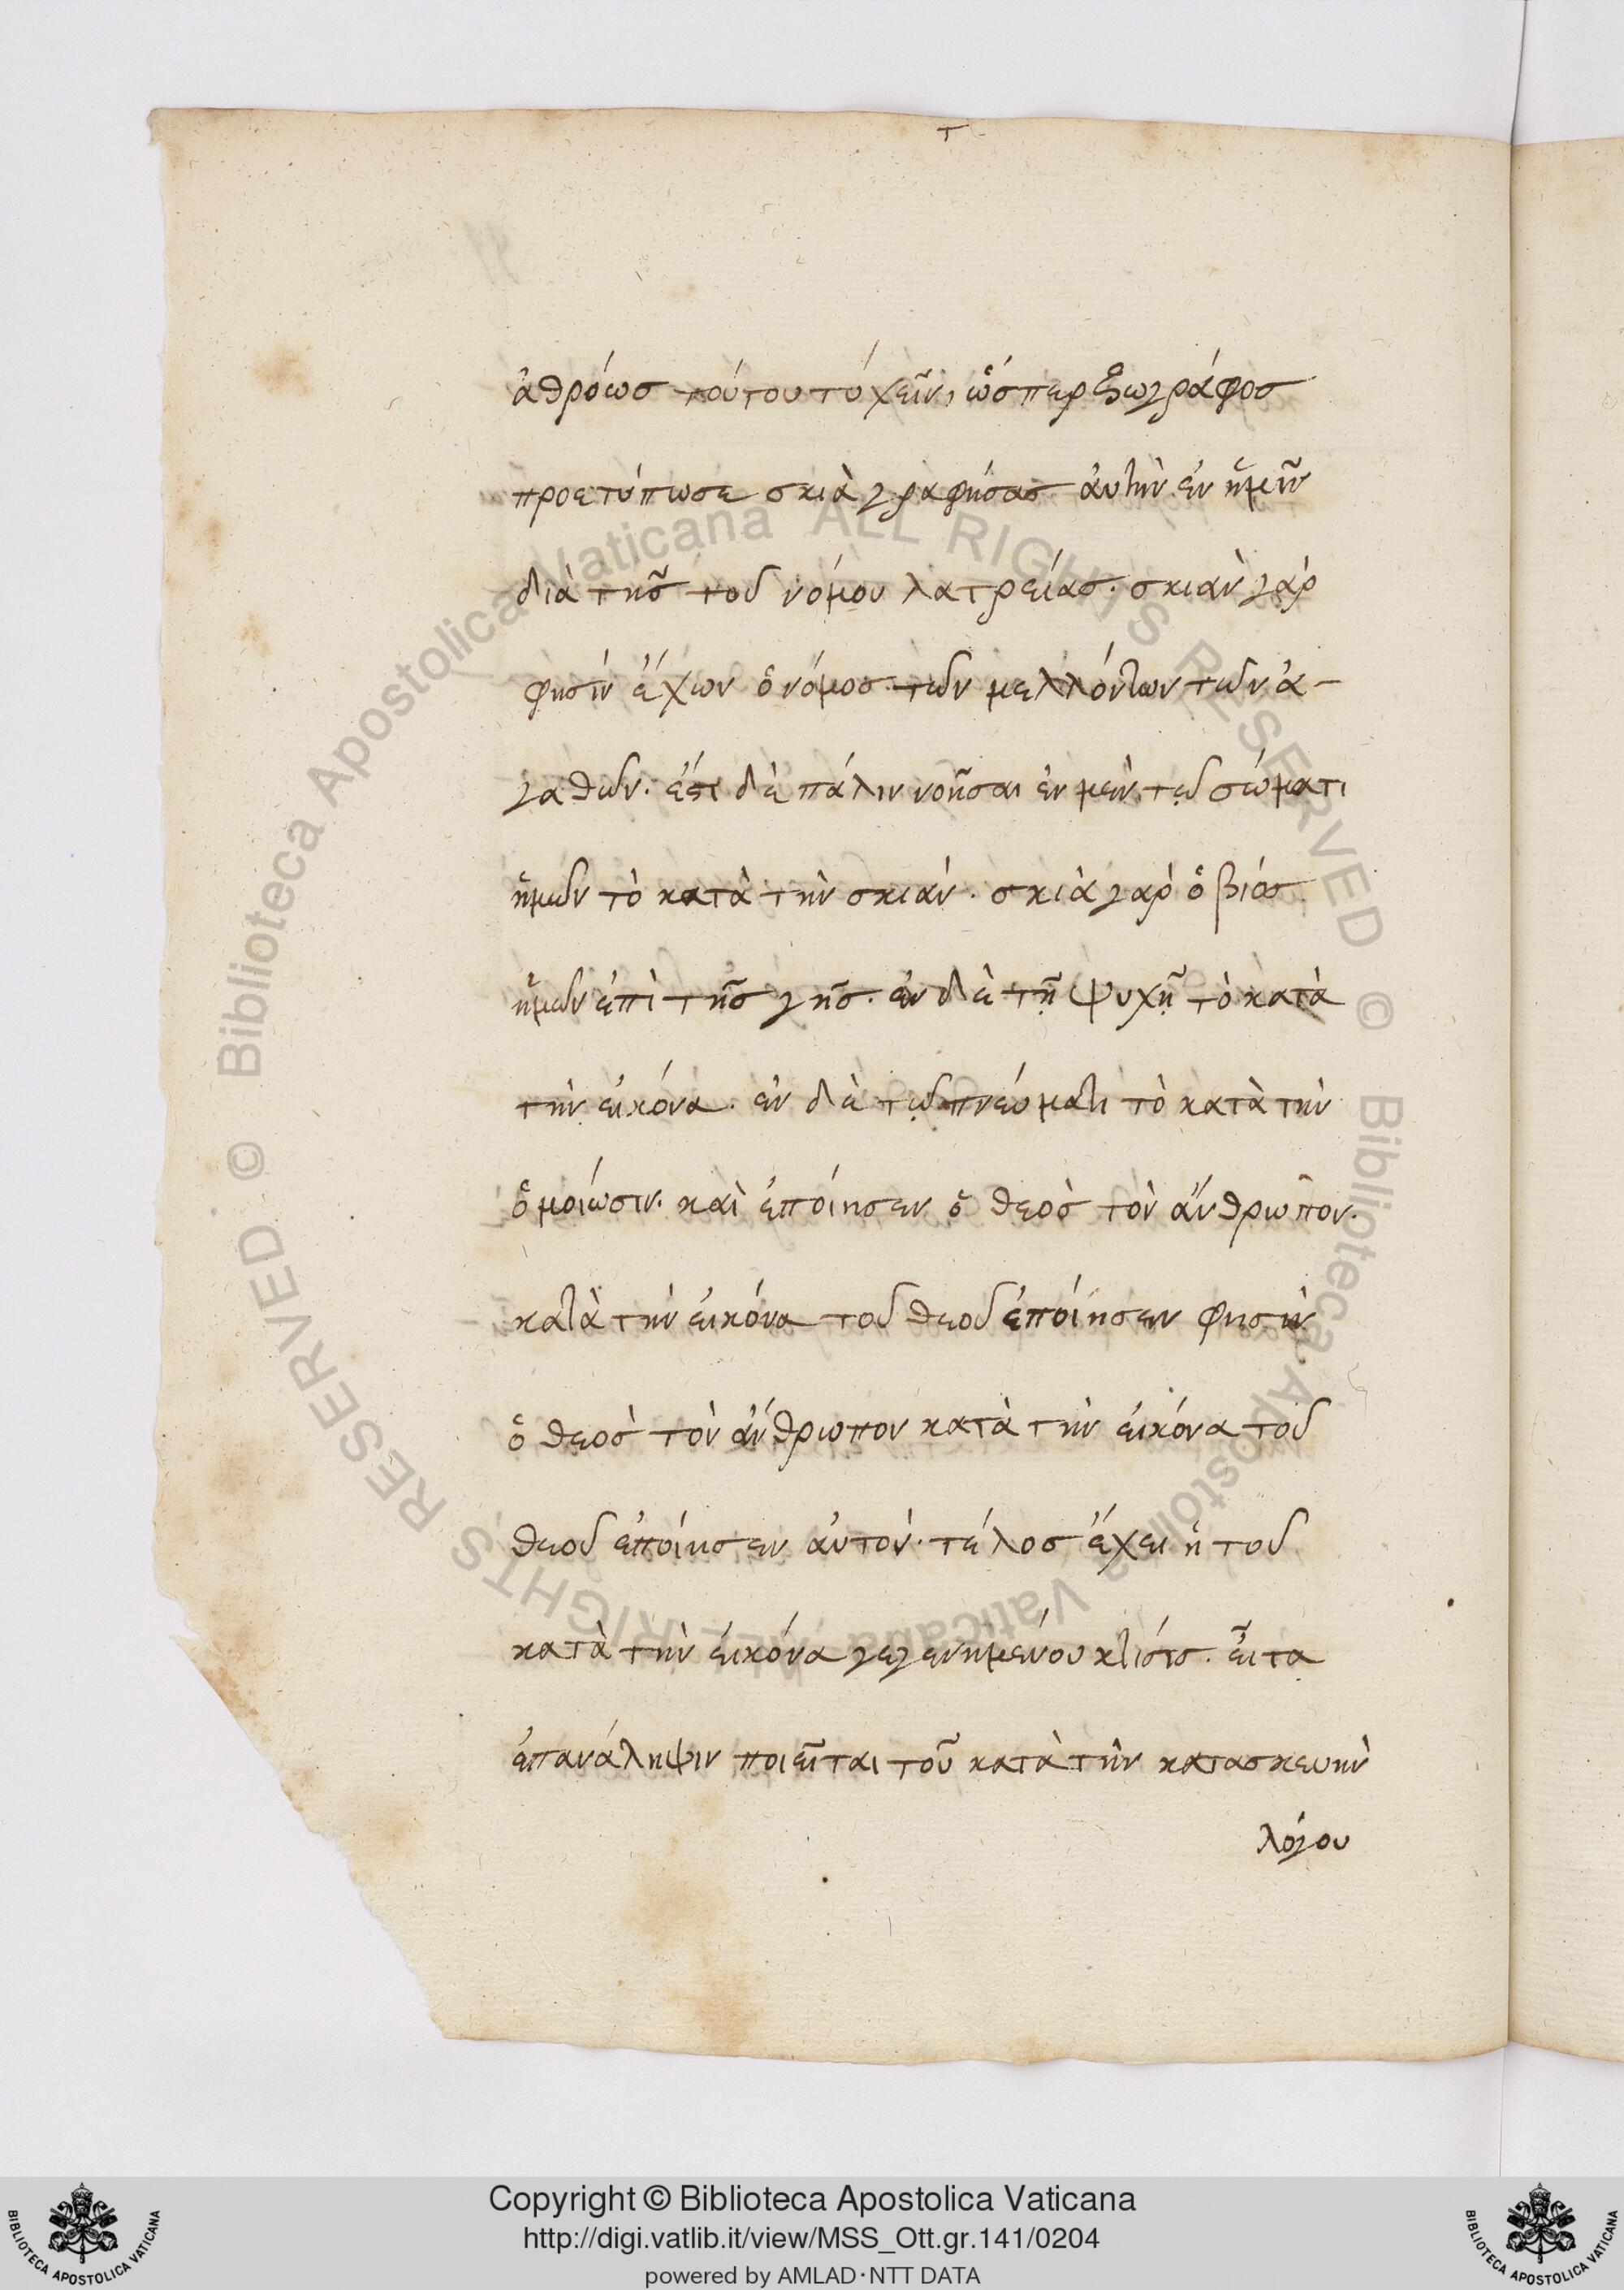 τ
ἀθρόωσ τούτου τύχεῖν, ὥσπερ ζωγράφοσ
προετύπωσε σκιὰ γραφήσασ ἀυτὴν ἐν ἡμῖν
διὰ τῆσ τοῦ νόμου λατρείασ. σκιὰν γὰρ
φησὶν ἔχων ὁ νόμοσ τῶν μελλόντων τῶν ἀ-
γαθῶν. ἔστι δὲ πάλιν νοῆσαι ἐν μὲν τῷ σώματι
ἡμῶν τὸ κατὰ τὴν σκιὰν. σκιὰ γὰρ ὁ βίοσ
ἡμῶν ἐπὶ τῆσ γῆσ. ἐν δὲ τῇ ψυχῇ τὸ κατὰ
τὴν ἐικόνα. ἐν δὲ τῷ πνεύματι τὸ κατὰ τὴν
ὁμοίωσιν. καὶ ἐποίησεν ὁ θεὸσ τὸν ἄνθρωπον.
κατὰ τὴν ἐικόνα τοῦ θεοῦ ἐποίησεν φησὶν
ὁ θεὸσ τὸν ἄνθρωπον κατὰ τὴν ἐικόνα τοῦ
θεοῦ ἐποίησεν ἀυτὸν. τέλοσ ἔχει ἡ τοῦ
κατὰ τὴν ἐικόνα γεγενημένου κτίσισ. εἶτα
ἐπανάληψιν ποιεῖται τοῦ κατὰ τὴν κατασκευὴν
λόγου
© Biblioteca Apostolica Vaticana ALL RIGHTS RESERVED © Biblioteca Apostolica Vaticana ALL RIGHTS RESERVED
Copyright © Biblioteca Apostolica Vaticana
http://digi.vatlib.it/view/MSS_Ott.gr.141/0204
powered by AMLAD·NTT DATA
BIBLIOTECA APOSTOLICA VATICANA
BIBLIOTECA APOSTOLICA VATICANA